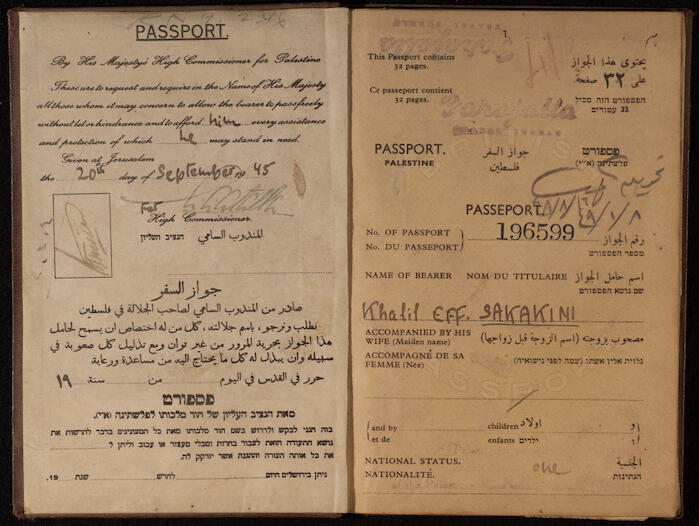 PASSPORT.
By His Majesty's High Commissioner for Palestine
These are to request and require in the Name of His Majesty
all those whom it may concern to allow the bearer to pass freely
without let or hindrance and to afford him every assistance
and protection of which he may stand in need.
Given at Jerusalem
the 20th day of September 1945
For
High Commissioner.
المندوب السامي הנציב העליון
جواز السفر
صادر من المندوب السامي لصاحب الجلالة في فلسطين
نطلب ونرجو، باسم جلالته، كل من له اختصاص ان يسمح لحامل
هذا الجواز بحرية المرور من غير توان ومع تذليل كل صعوبة في
سبيله وان يبذل له كل ما يحتاج اليه من مساعدة ورعاية
حرر في القدس في اليوم — من — سنة ١٩
פספורט
מאת הנציב העליון של הוד מלכותו לפלשתינה (א״י).
בזה הנני לבקש ולדרוש בשם הוד מלכותו את כל המעונינים בדבר להרשות את
נושא התעודה הזאת לעבור בחרות ומבלי מעצור או עכוב וליתן ל
את כל אותה העזרה וההגנה אשר יזדקק לה.
ניתן בירושלים היום לחדש שנת 19.
1
This Passport contains
32 pages.
يحتوي هذا الجواز
على ٣٢ صفحة
Ce passeport contient
32 pages.
הפספורט הזה מכיל
32 עמודים
PASSPORT. جواز السفر פספורט
PALESTINE فلسطين פלשתינה (א״י)
PASSEPORT.
No. OF PASSPORT
No. DU PASSEPORT
196599
رقم الجواز
מספר הפספורט
NAME OF BEARER NOM DU TITULAIRE اسم حامل الجواز
שם נושא הפספורט
Khalil EFF. SAKAKINI
ACCOMPANIED BY HIS
WIFE (Maiden name)
مصحوب بزوجته (اسم الزوجة قبل زواجها)
ACCOMPAGNÉ DE SA
FEMME (Née)
נלוית אליו אשתו (שמה לפני נישואיה)
and by children اولاد و
et de enfants ילדים ו
NATIONAL STATUS. الجنسية
NATIONALITÉ. הנתינות